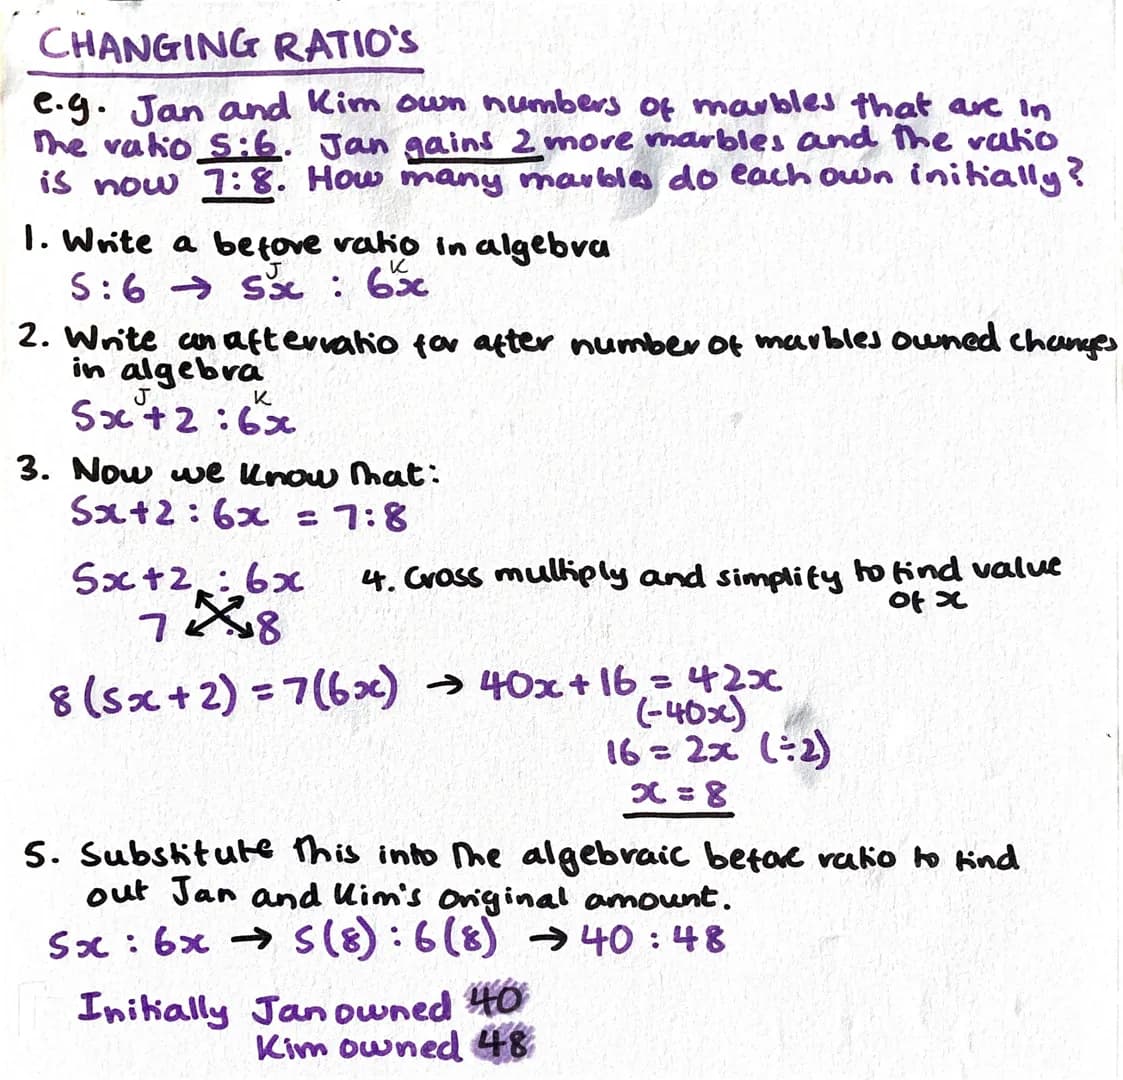 CHANGING RATIO'S
e.g. Jan and Kim own numbers of marbles that are in
the ratio 5:6. Jan gains 2 more marbles and the ratio
is now 7:8. How many marbles do each own initially?
1. Write a before ratio in algebra
J K
5:6 → 5x : 6x
2. Write an after ratio for after number of marbles owned changes
in algebra
J K
5x+2 : 6x
3. Now we know that:
5x+2 : 6x = 7:8
5x+2 : 6x 4. Cross multiply and simplify to find value
of x
7 : 8
8(5x+2) = 7(6x) → 40x+16 = 42x
(-40x)
16 = 2x (÷2)
x = 8
5. Substitute this into the algebraic before ratio to find
out Jan and Kim's original amount.
5x : 6x → 5(8) : 6(8) → 40 : 48
Initially Jan owned 40
Kim owned 48